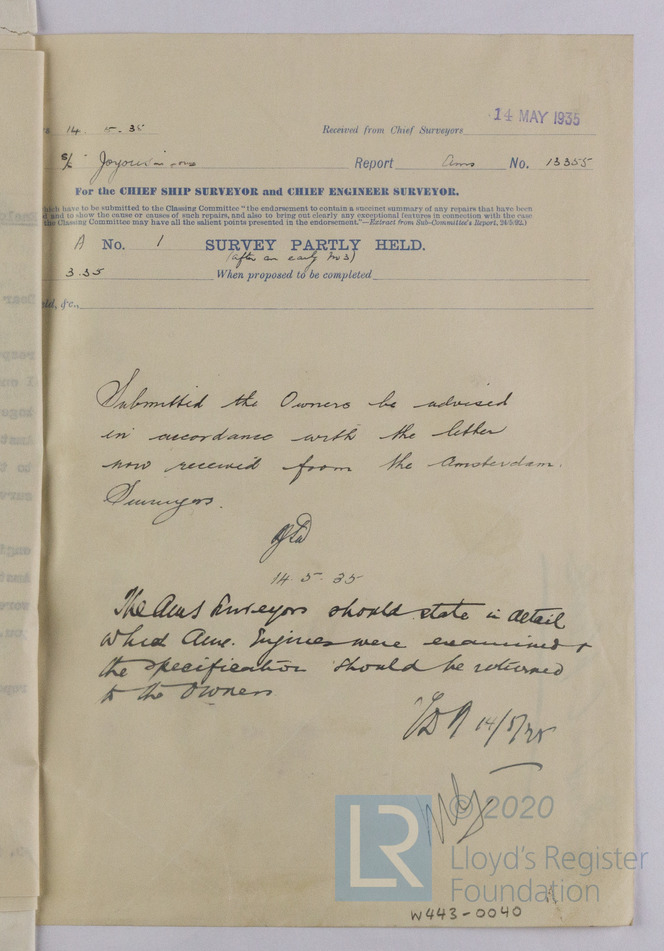 14. 5. 35
14 MAY 1935
Received from Chief Surveyors
Report Ams No. 13355
For the CHIEF SHIP SURVEYOR and CHIEF ENGINEER SURVEYOR.
which have to be submitted to the Classing Committee "the endorsement to contain a succinct summary of any repairs that have been
and to show the cause or causes of such repairs, and also to bring out clearly any exceptional features in connection with the case
the Classing Committee may have all the salient points presented in the endorsement."—Extract from Sub-Committee's Report, 24/9/02.)
A No. 1 SURVEY PARTLY HELD.
(after an early No 3)
3.35 When proposed to be completed
&c.,
Submitted the Owners be advised
in accordance with the letter
now received from the Amsterdam.
Surveyors.
14. 5. 35
The Ams Surveyors should state in detail
which Aux. Engines were examined &
the specification should be returned
to the Owners
14/5/35
© 2020
LR
Lloyd's Register
Foundation
W443-0040